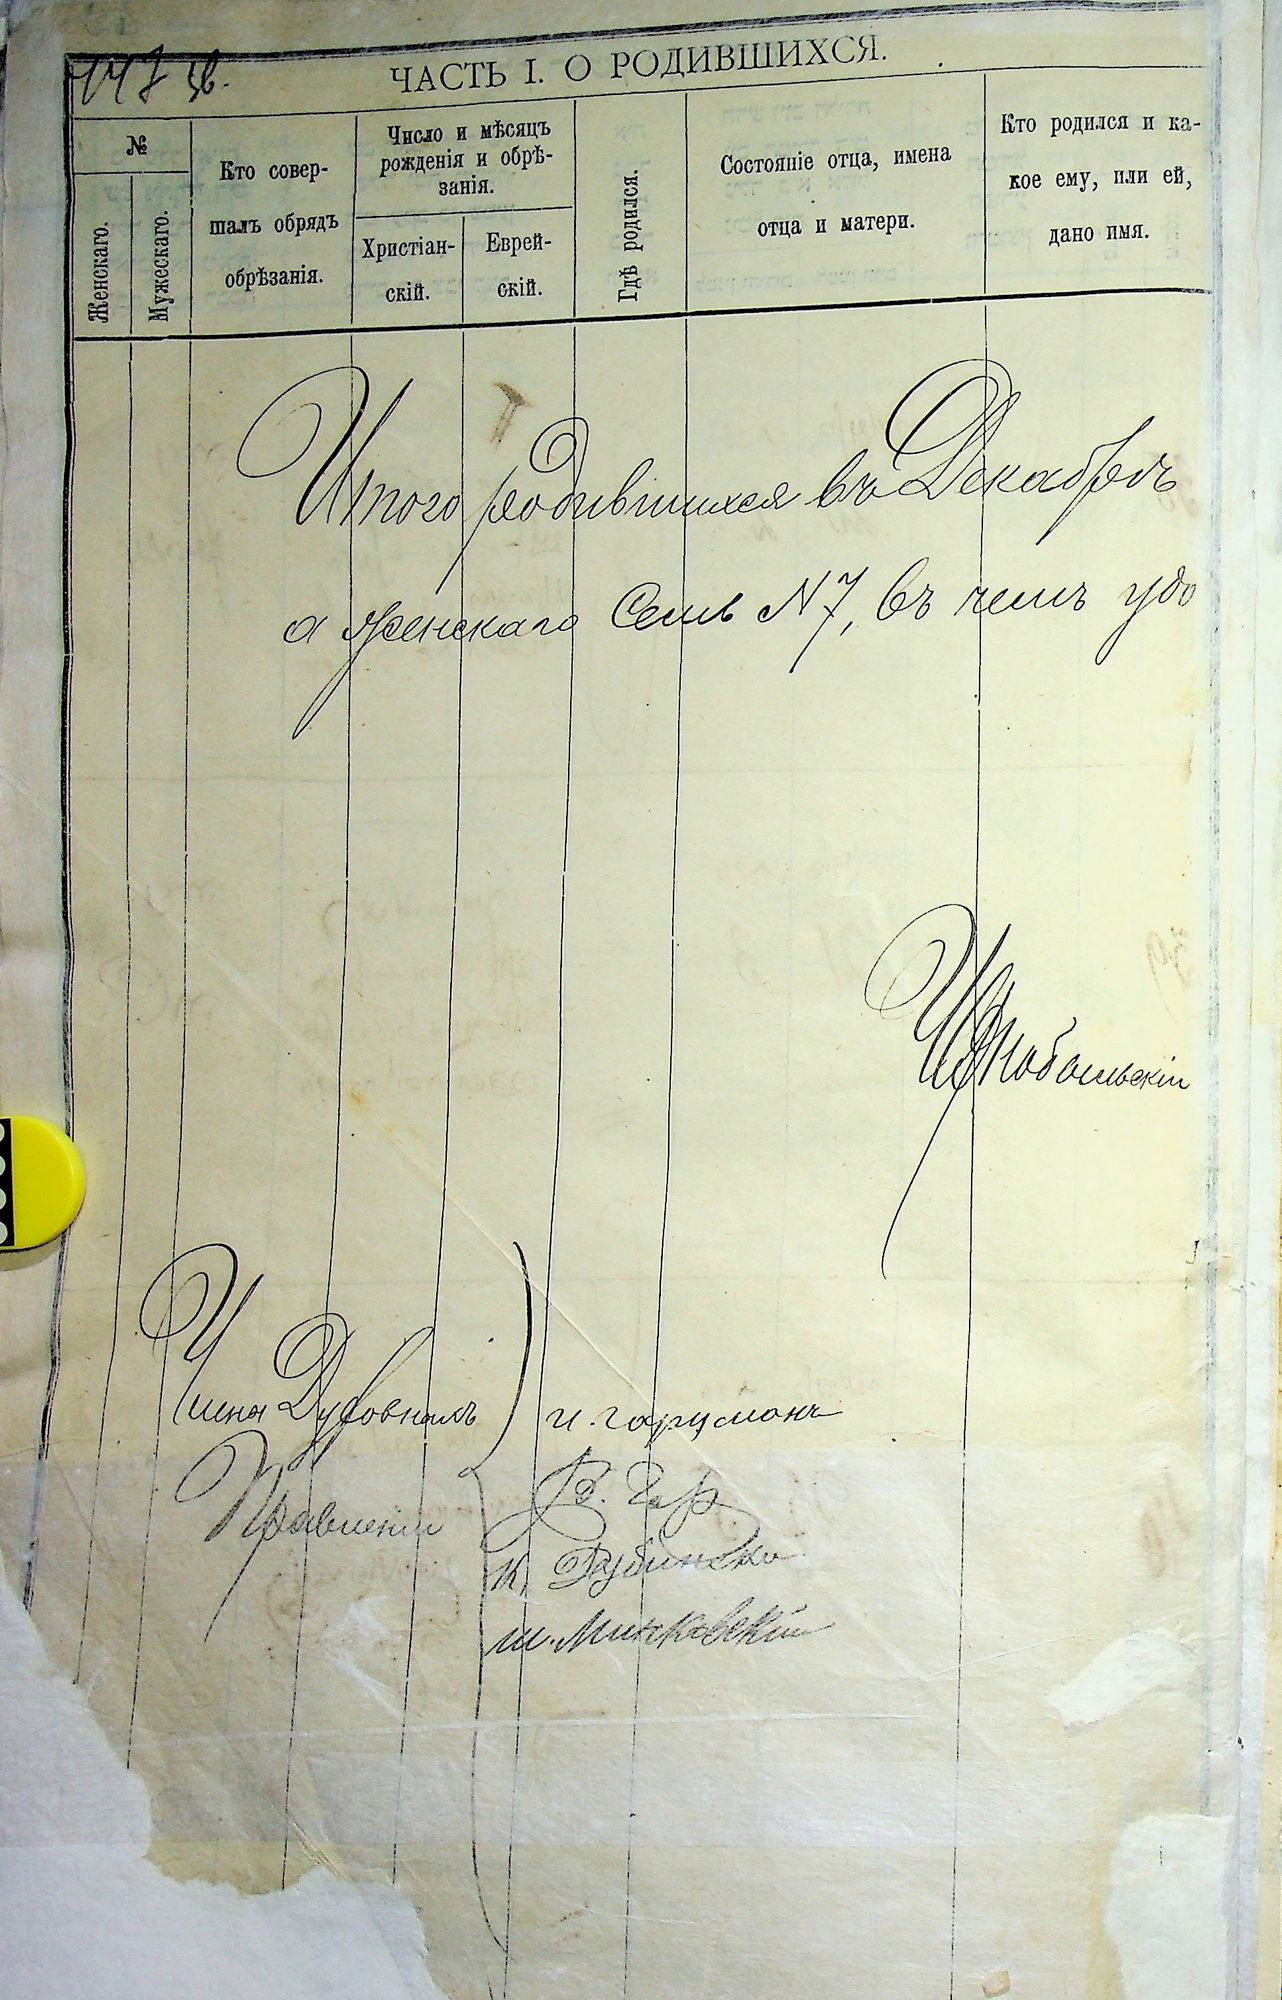 147 зв.
ЧАСТЬ I. О РОДИВШИХСЯ.
№
Женскаго.
Мужескаго.
Кто совер-
шалъ обрядъ
обрѣзанія.
Число и мѣсяцъ
рожденія и обрѣ-
занія.
Христіан-
скій.
Еврей-
скій.
Гдѣ родился.
Состояніе отца, имена
отца и матери.
Кто родился и ка-
кое ему, или ей,
дано имя.
Итого родившихся въ Декабрѣ
а женскаго Семь N 7, въ чемъ удо
Члены Духовнаго
Правленія
В. Гер
К. Рубинско
Ш. Минковскій